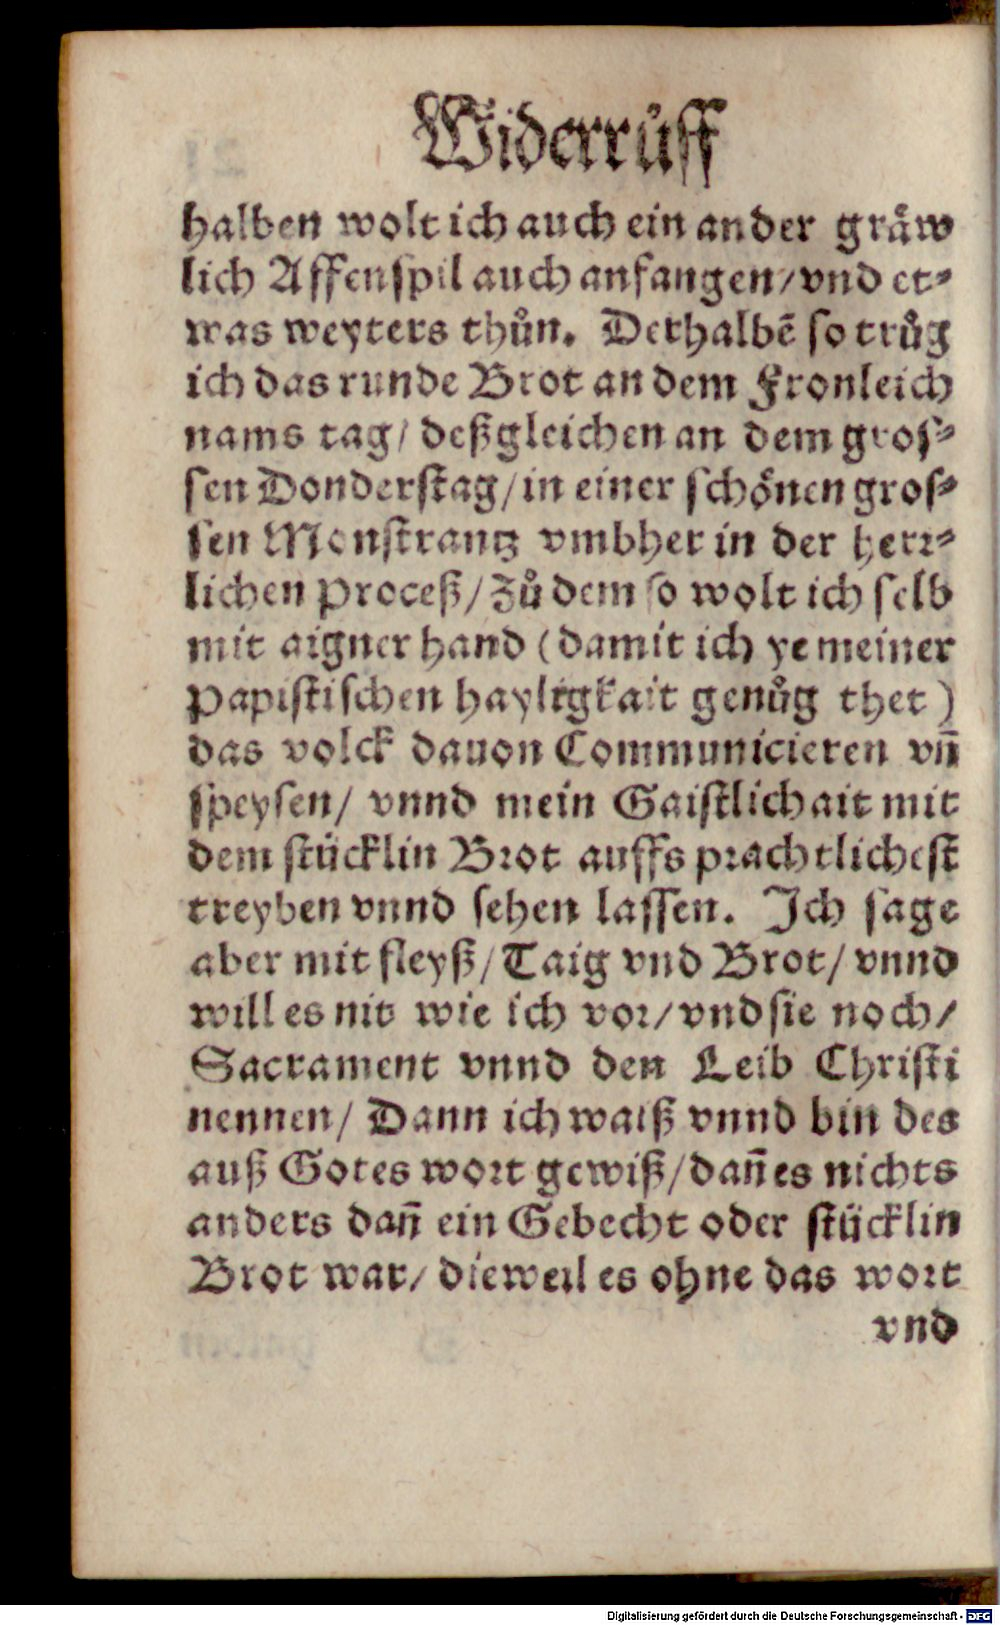 Widerruͦff
halben wolt ich auch ein ander graͤw
lich Affenspil auch anfangen/ vnd et⸗
was weyters thuͦn. Derhalbē so truͦg
ich das runde Brot an dem Fronleich
nams tag/ deßgleichen an dem gros⸗
sen Donderstag/ in einer schoͤnen gros⸗
sen Monstrantz vmbher in der herr⸗
lichen Proceß/ Zuͦ dem so wolt ich selb
mit aigner hand (damit ich ye meiner
Papistischen hayligkait genuͦg thet)
das volck dauon Communicieren vn̄
speysen/ vnnd mein Gaistlichait mit
dem stücklin Brot auffs prachtlichest
treyben vnnd sehen lassen. Ich sage
aber mit fleyß/ Taig vnd Brot/ vnnd
will es nit wie ich vor/ vnd sie noch/
Sacrament vnnd den Leib Christi
nennen/ Dann ich waiß vnnd bin des
auß Gotes wort gewiß/ dan̄ es nichts
anders dan̄ ein Gebecht oder stücklin
Brot war/ dieweil es ohne das wort
vnd
Digitalisierung gefördert durch die Deutsche Forschungsgemeinschaft - DFG